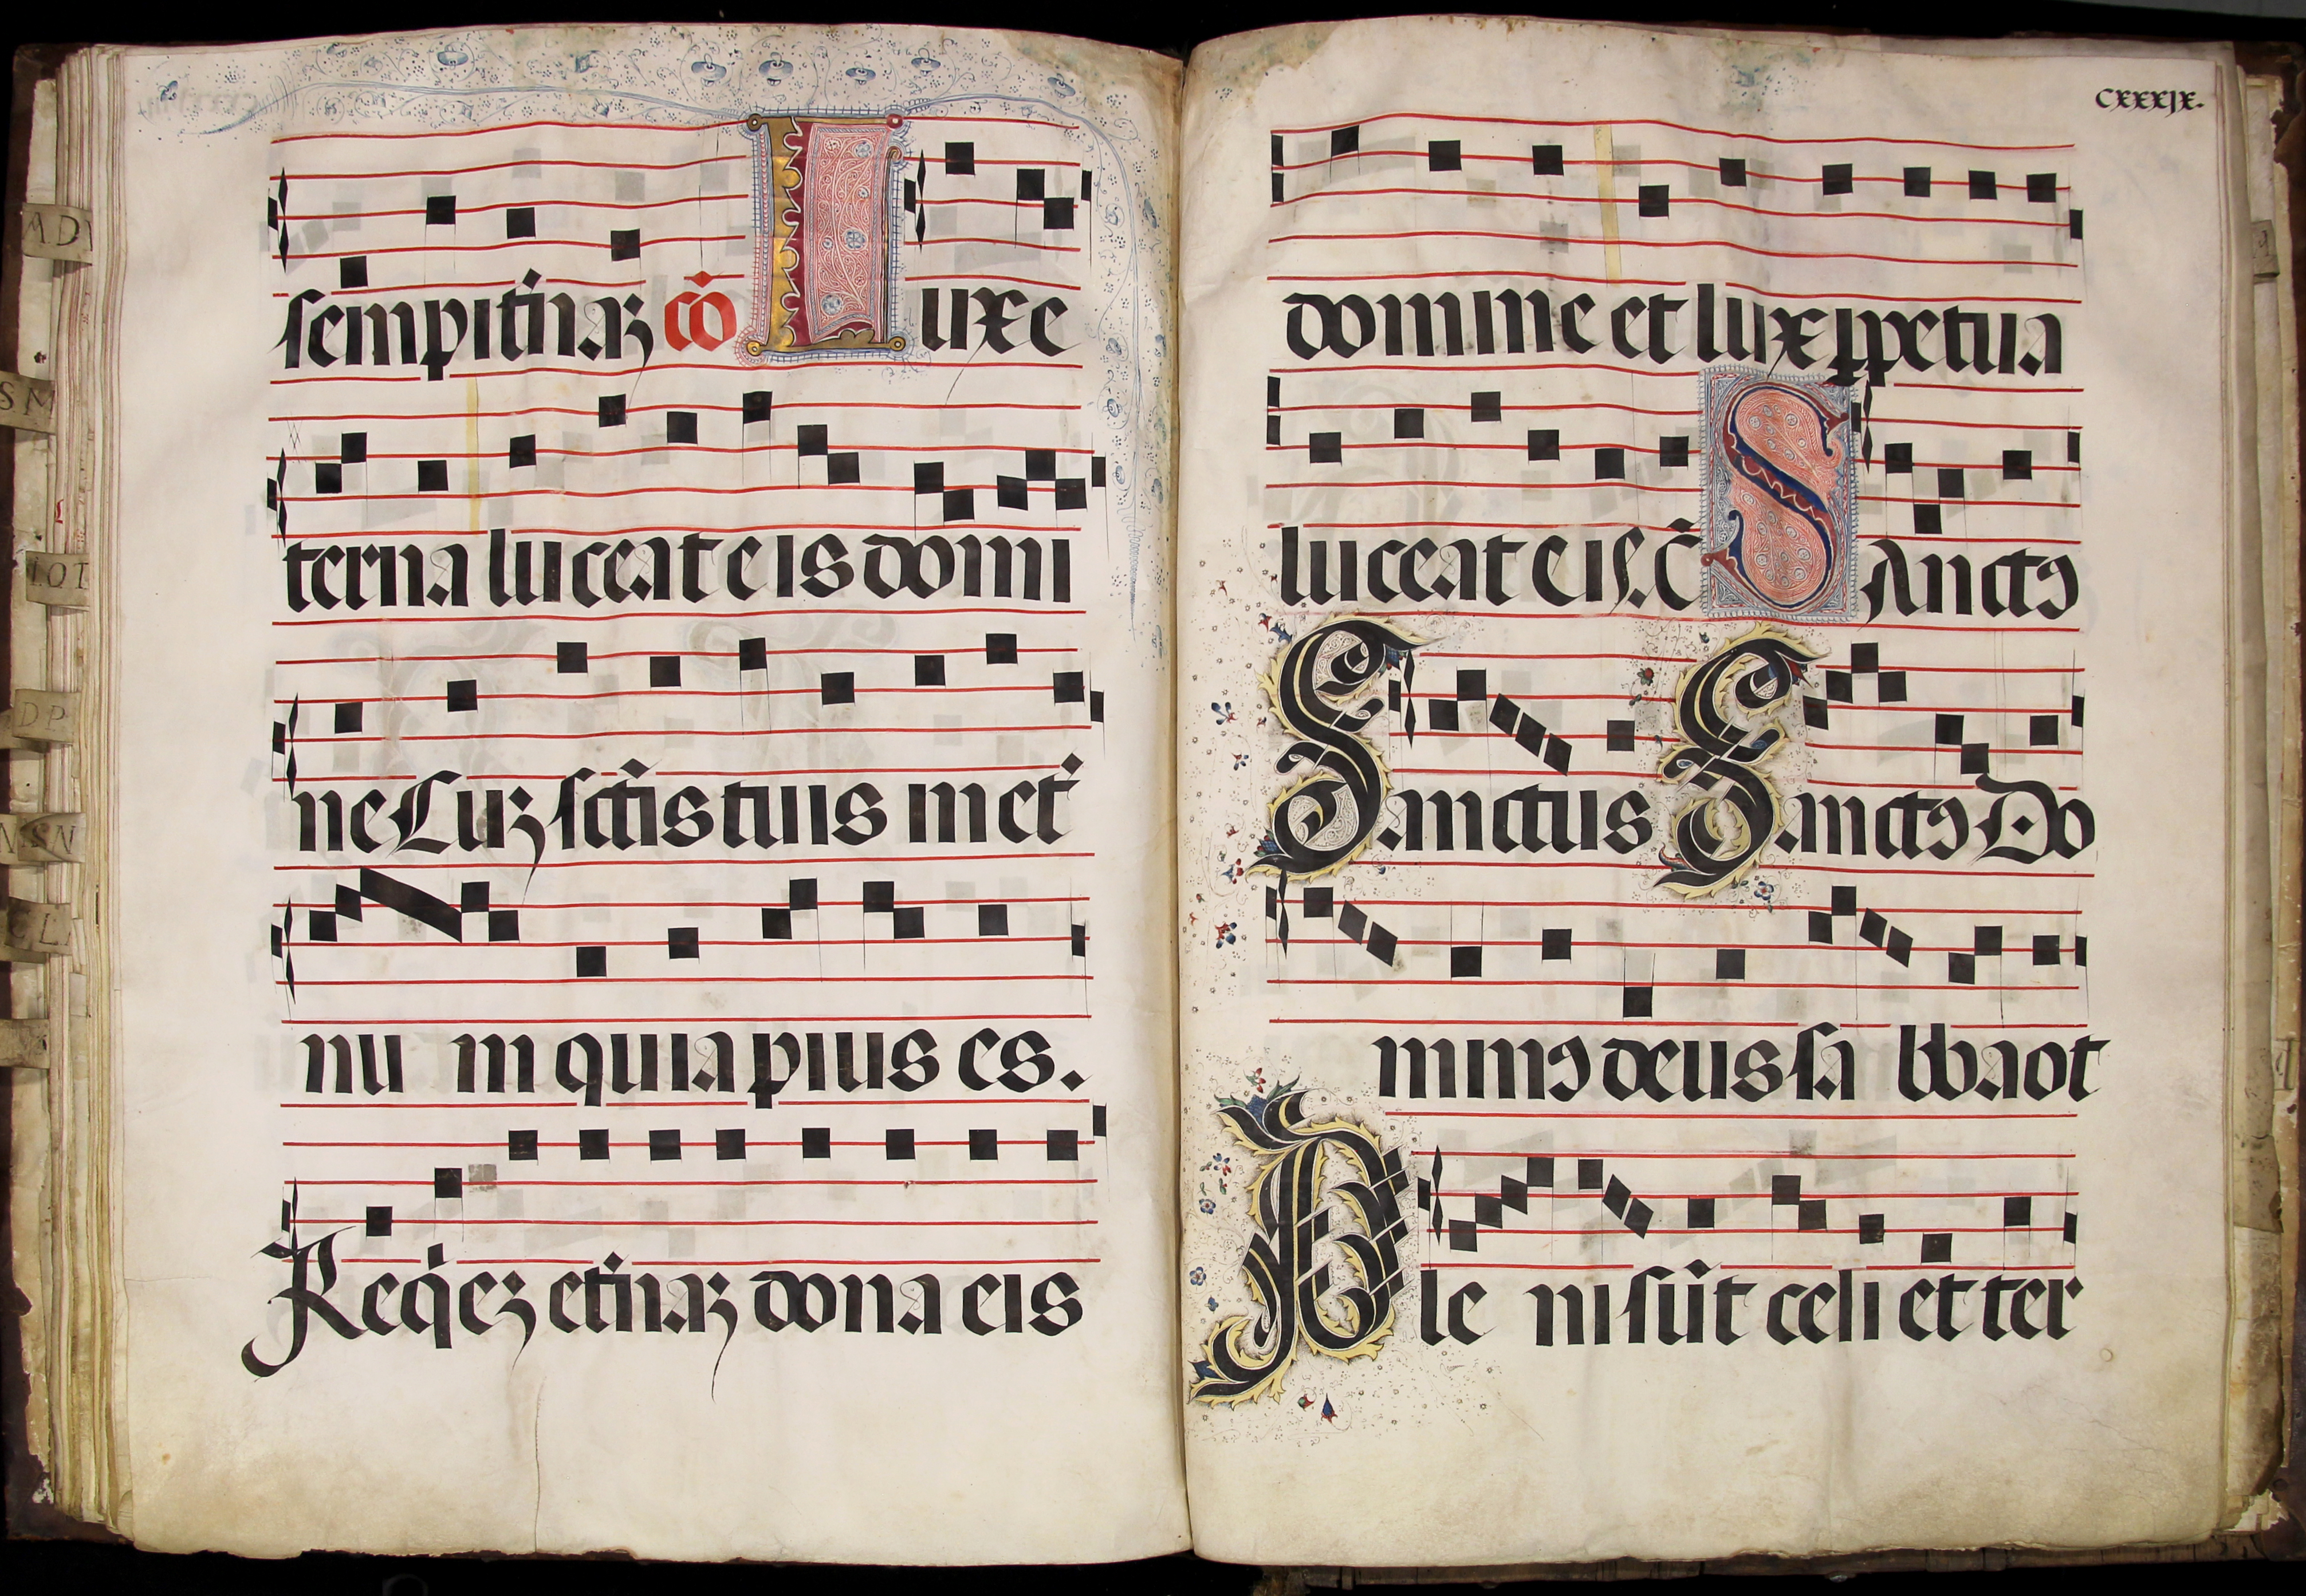 AD
SM
LOT
DP
NSN
CL
sempit̃naʒ cõ Luxe
terna luceat eis domi
ne Cuʒ sc̃tis tuis in et̃
nu m quia pius es.
Req̇eʒ et̃naʒ dona eis
CXXXJX.
domine et lux ꝑpetua
luceat eis. C̃ Sanctꝯ
Sanctus Sanctꝯ Do
minꝯ deus sa bbaot
Ple ni sũt celi et ter